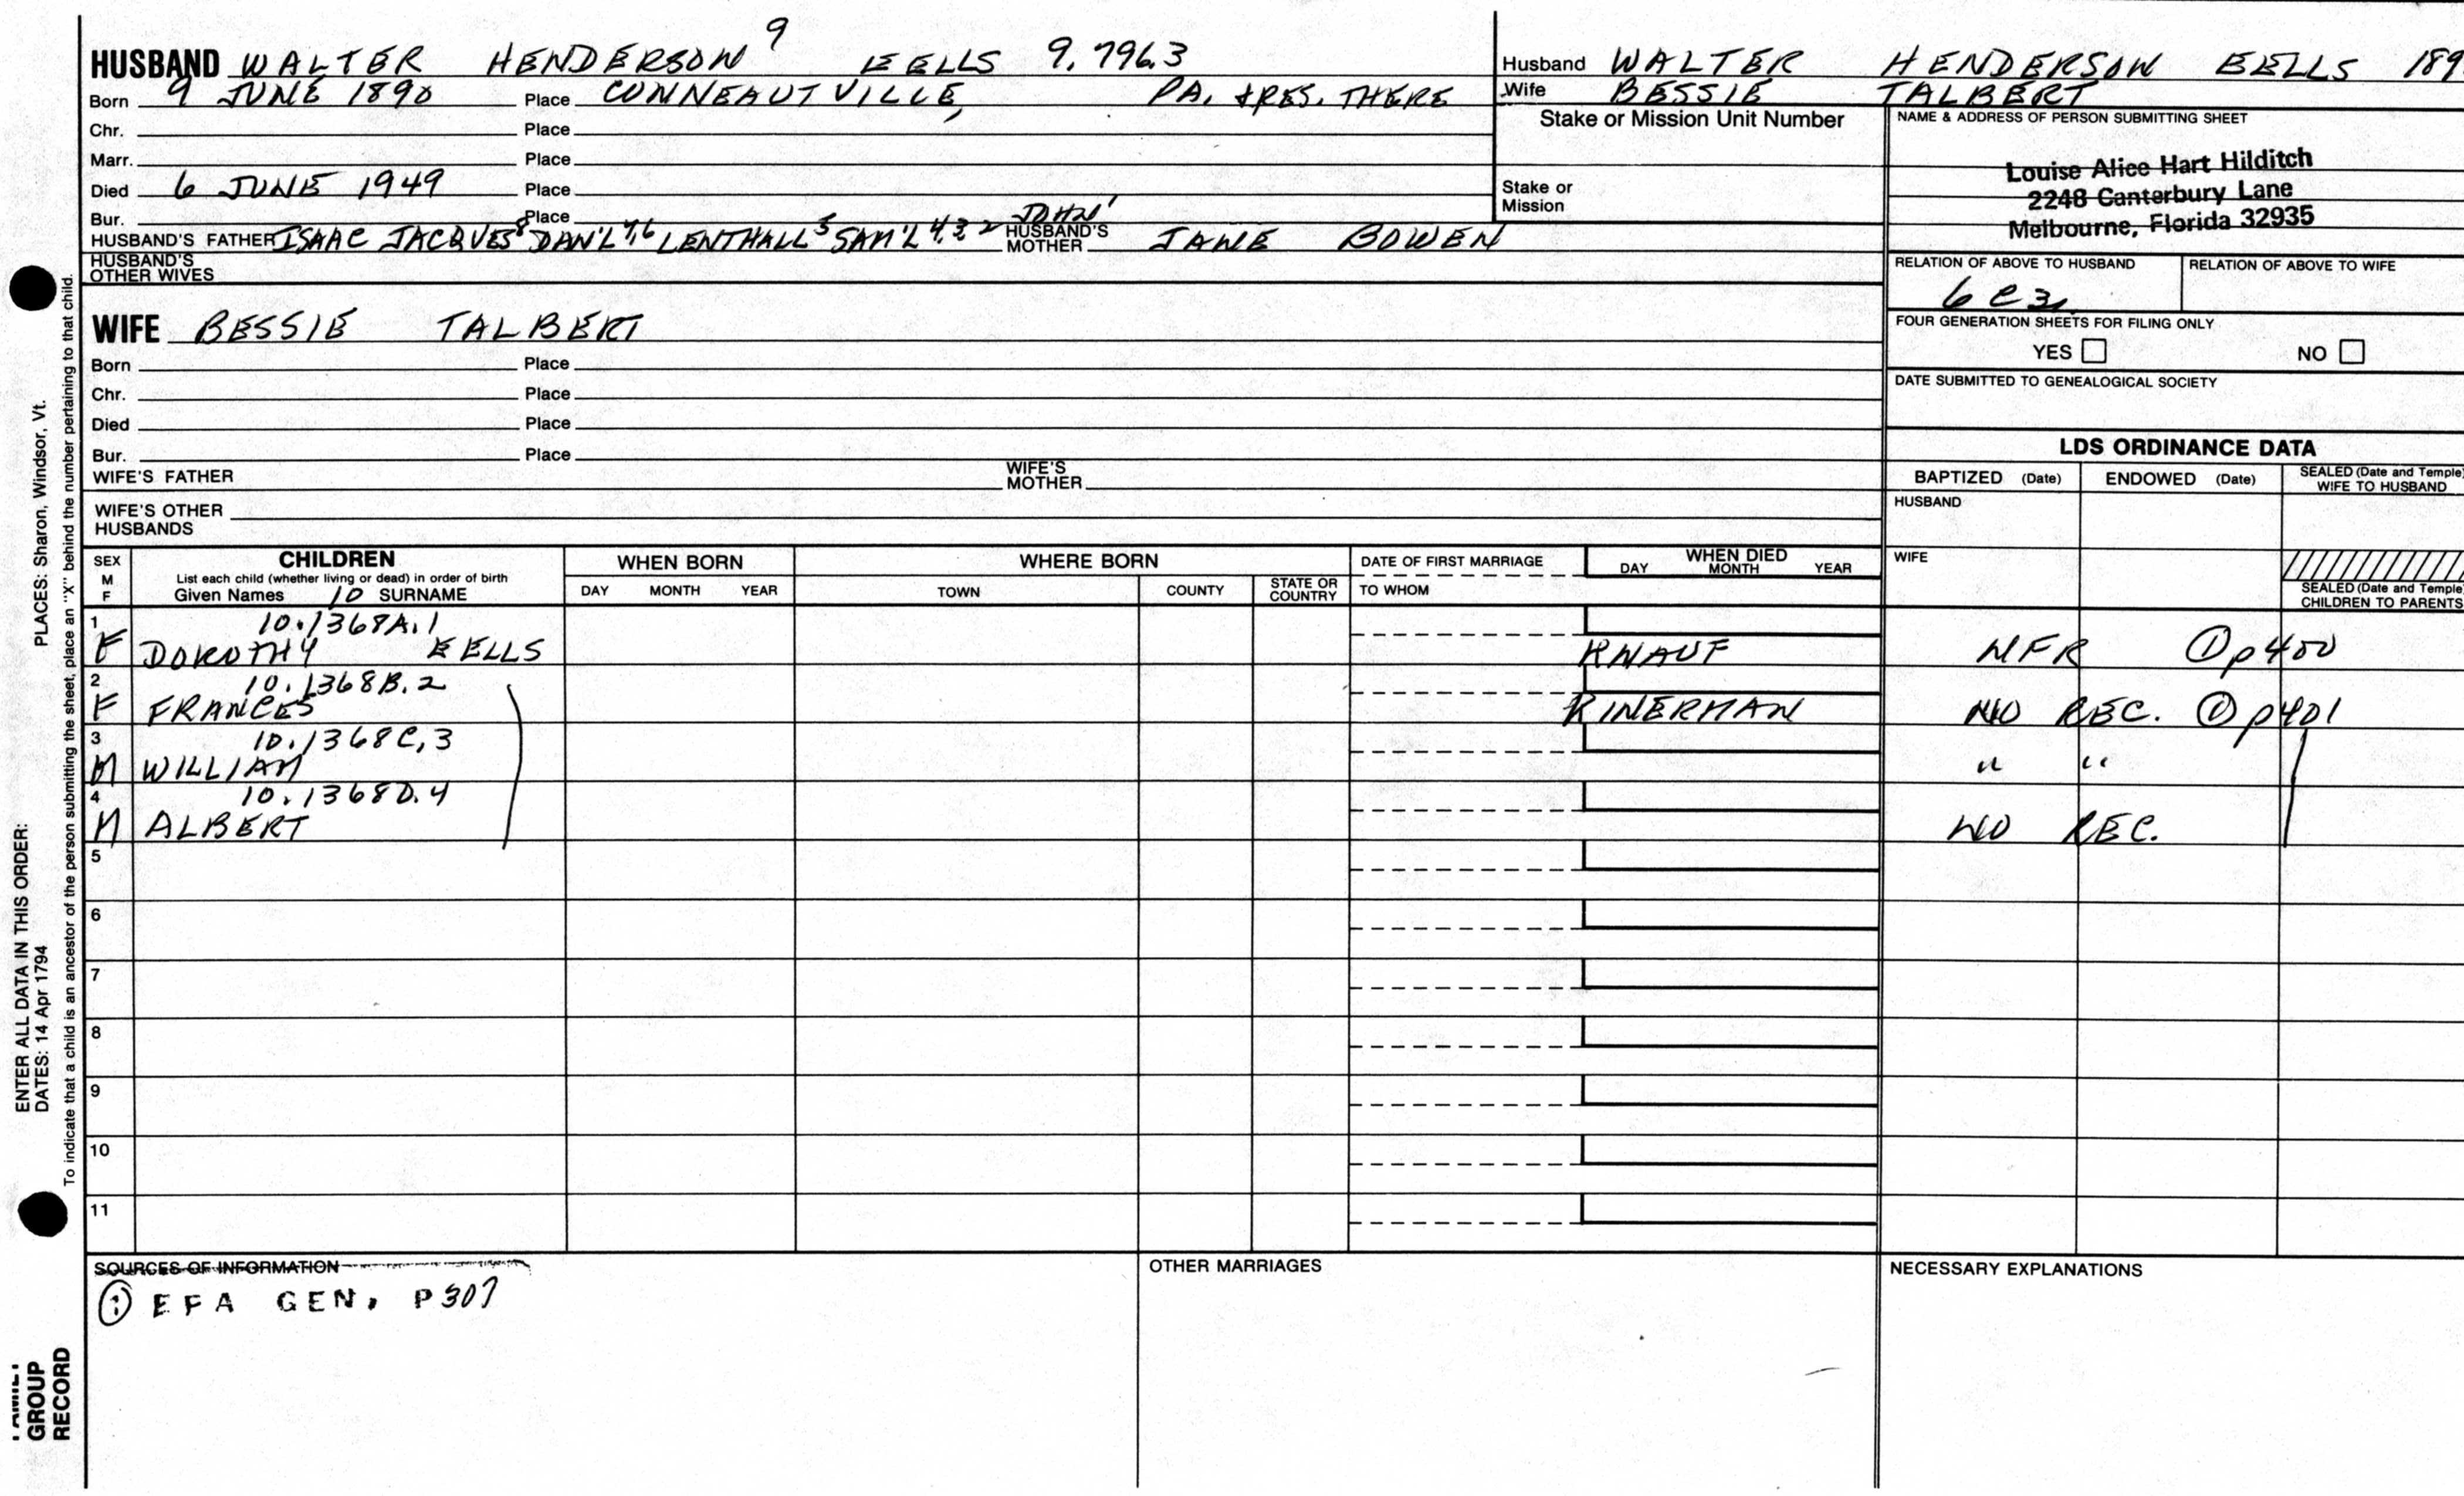 HUSBAND WALTER HENDERSON 9 EELLS 9.796.3
Born 9 JUNE 1890 Place CONNEAUTVILLE, PA. & RES. THERE
Chr. Place
Marr. Place
Died 6 JUNE 1949 Place
Bur. Place
HUSBAND'S FATHER ISAAC JACQUES 8 DAN'L 7,6 LENTHALL 5 SAM'L 4,3,2 JOHN 1 HUSBAND'S MOTHER JANE BOWEN
HUSBAND'S OTHER WIVES
WIFE BESSIE TALBERT
Born Place
Chr. Place
Died Place
Bur. Place
WIFE'S FATHER WIFE'S MOTHER
WIFE'S OTHER HUSBANDS
Husband WALTER HENDERSON EELLS 189
Wife BESSIE TALBERT
Stake or Mission Unit Number
Stake or Mission
NAME & ADDRESS OF PERSON SUBMITTING SHEET
Louise Alice Hart Hilditch
2248 Canterbury Lane
Melbourne, Florida 32935
RELATION OF ABOVE TO HUSBAND RELATION OF ABOVE TO WIFE
FOUR GENERATION SHEETS FOR FILING ONLY
YES NO
DATE SUBMITTED TO GENEALOGICAL SOCIETY
LDS ORDINANCE DATA
BAPTIZED (Date) ENDOWED (Date) SEALED (Date and Temple) WIFE TO HUSBAND
HUSBAND
WIFE
SEALED (Date and Temple) CHILDREN TO PARENTS
SEX M F
CHILDREN
List each child (whether living or dead) in order of birth
Given Names 10 SURNAME
WHEN BORN
DAY MONTH YEAR
WHERE BORN
TOWN COUNTY STATE OR COUNTRY
DATE OF FIRST MARRIAGE
TO WHOM
WHEN DIED
DAY MONTH YEAR
1 10.1368A.1
F DOROTHY EELLS KNAUF NFR ① p400
2 10.1368B.2
F FRANCES RINERMAN NO REC. ① p401
3 10.1368C,3
M WILLIAM " "
4 10.1368D.4
M ALBERT NO REC.
5
6
7
8
9
10
11
SOURCES OF INFORMATION
① EFA GEN, P307
OTHER MARRIAGES
NECESSARY EXPLANATIONS
ENTER ALL DATA IN THIS ORDER:
DATES: 14 Apr 1794 PLACES: Sharon, Windsor, Vt.
To indicate that a child is an ancestor of the person submitting the sheet, place an "X" behind the number pertaining to that child.
GROUP
RECORD